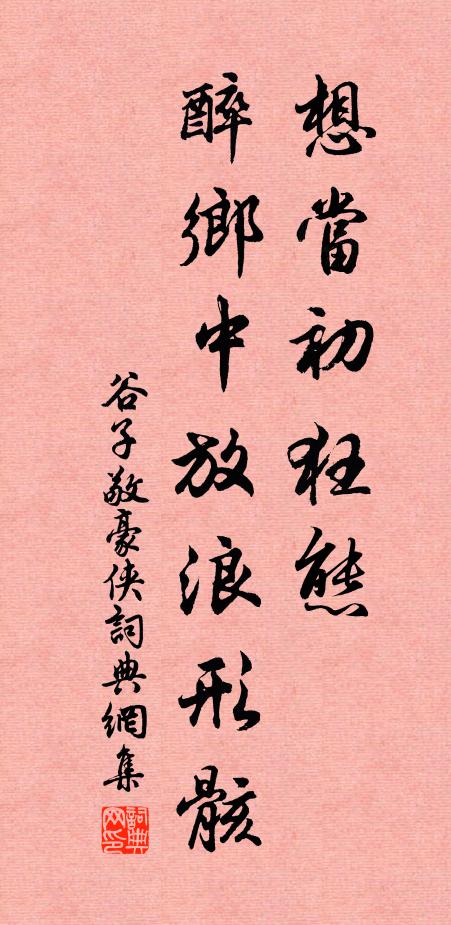 想當初狂態
醉鄉中放浪形骸
谷子敬豪俠詞典網集
詞典網印